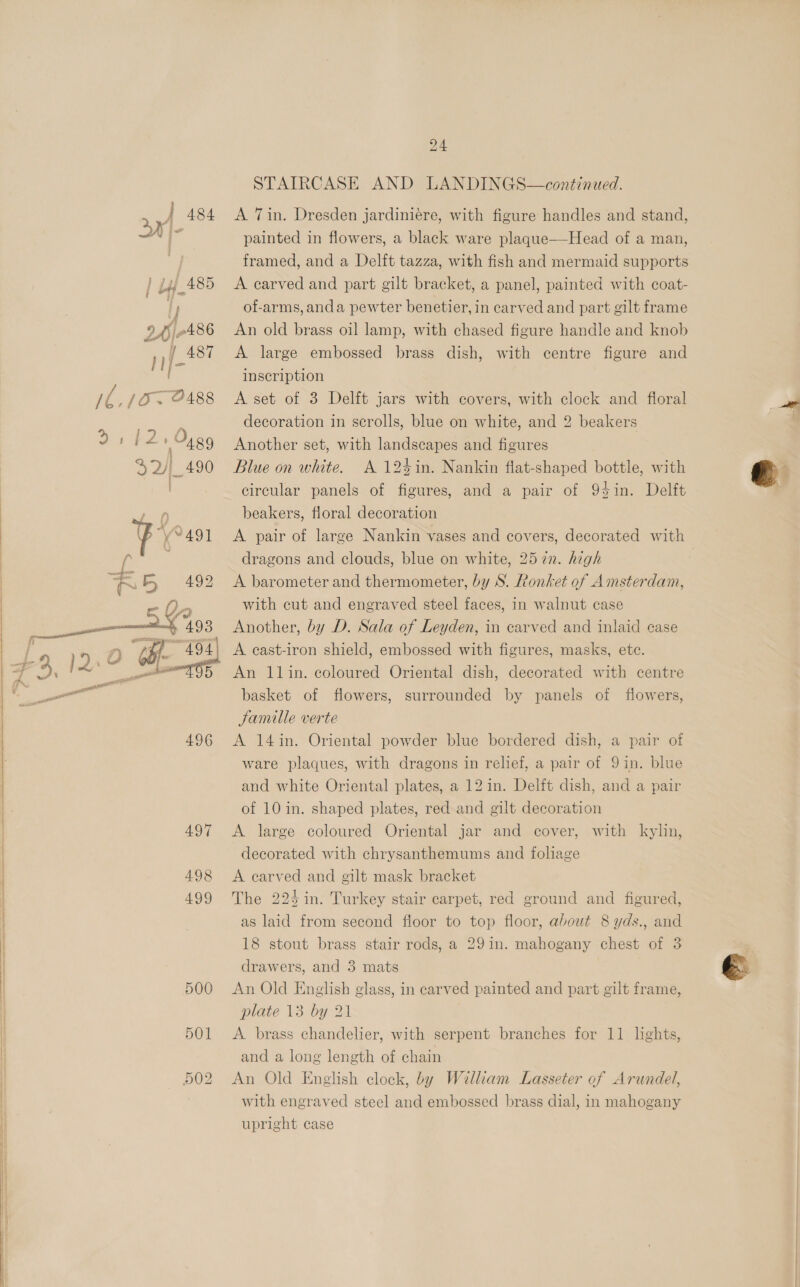 24
STAIRCASE AND LANDINGS—continued.
484 A 7in. Dresden jardinière, with figure handles and stand,
painted in flowers, a black ware plaque—Head of a man,
framed, and a Delft tazza, with fish and mermaid supports
485 A carved and part gilt bracket, a panel, painted with coat-
of-arms, and a pewter benetier, in carved and part gilt frame
486 An old brass oil lamp, with chased figure handle and knob
487 A large embossed brass dish, with centre figure and
inscription
488 A set of 3 Delft jars with covers, with clock and floral
decoration in scrolls, blue on white, and 2 beakers
489 Another set, with landscapes and figures
490 Blue on white. A 12½in. Nankin flat-shaped bottle, with
circular panels of figures, and a pair of 9½in. Delft
beakers, floral decoration
491 A pair of large Nankin vases and covers, decorated with
dragons and clouds, blue on white, 25 in. high
492 A barometer and thermometer, by S. Ronket of Amsterdam,
with cut and engraved steel faces, in walnut case
493 Another, by D. Sala of Leyden, in carved and inlaid case
494 A cast-iron shield, embossed with figures, masks, etc.
495 An 11in. coloured Oriental dish, decorated with centre
basket of flowers, surrounded by panels of flowers,
famille verte
496 A 14in. Oriental powder blue bordered dish, a pair of
ware plaques, with dragons in relief, a pair of 9in. blue
and white Oriental plates, a 12in. Delft dish, and a pair
of 10in. shaped plates, red and gilt decoration
497 A large coloured Oriental jar and cover, with kylin,
decorated with chrysanthemums and foliage
498 A carved and gilt mask bracket
499 The 22½in. Turkey stair carpet, red ground and figured,
as laid from second floor to top floor, about 8 yds., and
18 stout brass stair rods, a 29in. mahogany chest of 3
drawers, and 3 mats
500 An Old English glass, in carved painted and part gilt frame,
plate 13 by 21
501 A brass chandelier, with serpent branches for 11 lights,
and a long length of chain
502 An Old English clock, by William Lasseter of Arundel,
with engraved steel and embossed brass dial, in mahogany
upright case